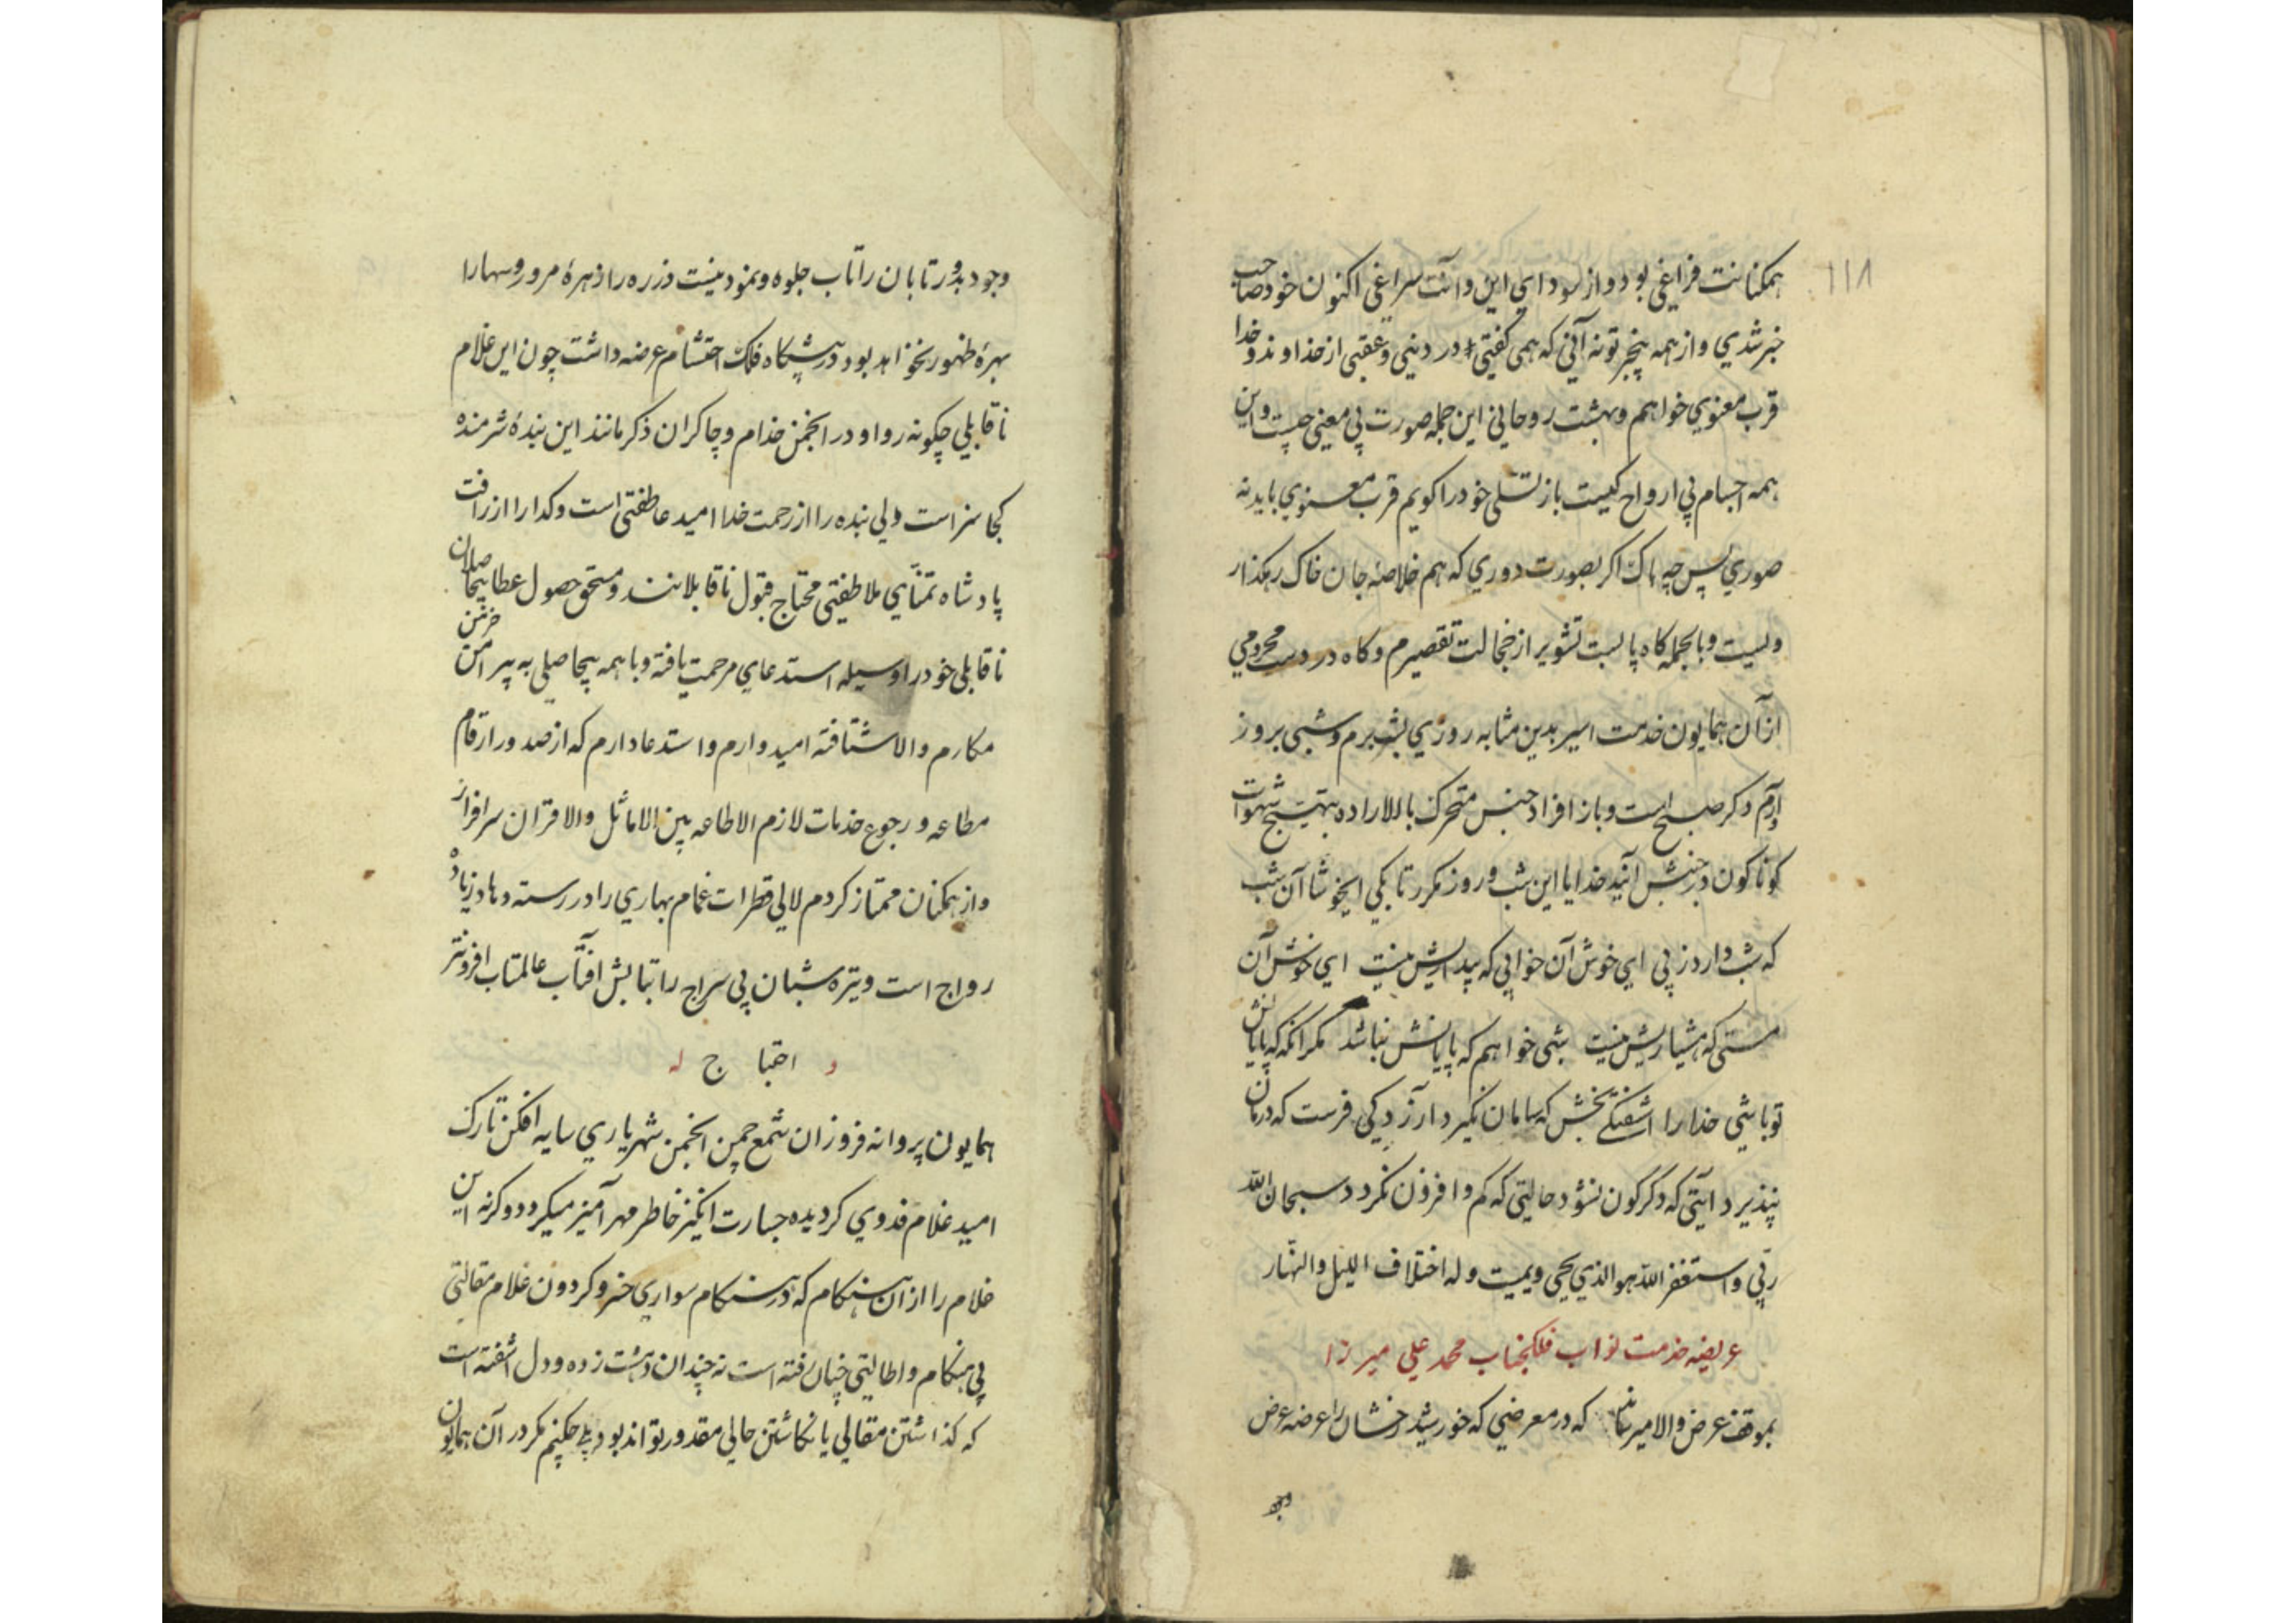 ۱۱۸
همکنانت فراغی بود و از سودای این و آنت سراغی اکنون خود صاحب
خبر شدی و از همه بیخبر تو نه آنی که همی گفتی در دنیی و عقبی از خداوند و خدا
قرب معنوی خواهم و بهشت روحانی این جمله صورت بی معنی چیست و این
همه اجسام بی ارواح کیست باز تسلی خود را کویم قرب معنوی باید نه
صوری پس چه باک اکر بصورت دوری که هم خلاصهٔ جان خاک رهکذار
ویست و بالجمله کاه پا بست تشویر از خجالت تقصیرم و کاه در دست محرومی
از آن همایون خدمت اسیر بدین مثابه روزی بشب برم و شبی بروز
آرم و کر صبح است و باز افراد جنس متحرک بالاراده بتهییج شهوات
کوناکون در جنبش آیند خدایا این شب و روز مکرر تا بکی ایخوشا آن شب
که شب وارد ز پی ای خوش آن خوابی که بیداریش نیست ای خوش آن
مستی که هشیاریش نیست شبی خواهم که پایانش نباشد مکر آنکه که پایانش
تو باشی خدا را آشفتکی بخش که سامان نکیرد آرزدکی فرست که درمان
نپذیرد آیتی که دکرکون نشود حالتی که کم و افزون نکردد سبحان الله
ربی و استغفر الله هو الذی یحیی و یمیت و له اختلاف اللیل والنهار
عریضه خدمت نواب فلکجناب محمد علی میرزا
بموقف عرض والا میرساند که در معرضی که خورشید رخشان را عرضه عرض
وجود
وجود بدور تابان را تاب جلوه و نمود نیست ذره را زهرهٔ مرور و سها را
بهرهٔ ظهور نخواهد بود در پیشکاه فلک احتشام عرضه داشت چون این غلام
ناقابلی چکونه روا و در انجمن خدام و چاکران ذکر مانند این بندهٔ شرمنده
کجا سزاست ولی بنده را از رحمت خدا امید عاطفتی است و کدا را از رافت
پادشاه تمنای ملاطفتی محتاج قبول ناقابلانند و مستحق حصول عطا بیحاصلان
ناقابلی خود را وسیله استدعای مرحمت یافته و با همه بیحاصلی به پیرامن خرمن
مکارم والا شتافته امیدوارم و استدعا دارم که از صدور ارقام
مطاعه و رجوع خدمات لازم الاطاعه بین الاماثل والاقران سرافراز
و از همکنان ممتاز کردم لالی قطرات غمام بهاری را در رسته وهاد زیاده
رواج است و تیره شبان بی سراج را بتابش آفتاب عالمتاب افزونتر
و احتیاج له
همایون پروانه فروزان شمع چمن انجمن شهریاری سایه افکن تارک
امید غلام فدوی کردیده جسارت انکیز خاطر مهر آمیز میکردد و کرنه این
غلام را از آن هنکام که در هنکام سواری خسرو کردون غلام مقالتی
بی هنکام و اطالتی چنان رفته است نه چندان دهشت زده و دل آشفته است
که کذاشتن مقالی یا نکاشتن حالی مقدور تواند بود بلی چکنم مکر در آن همایون